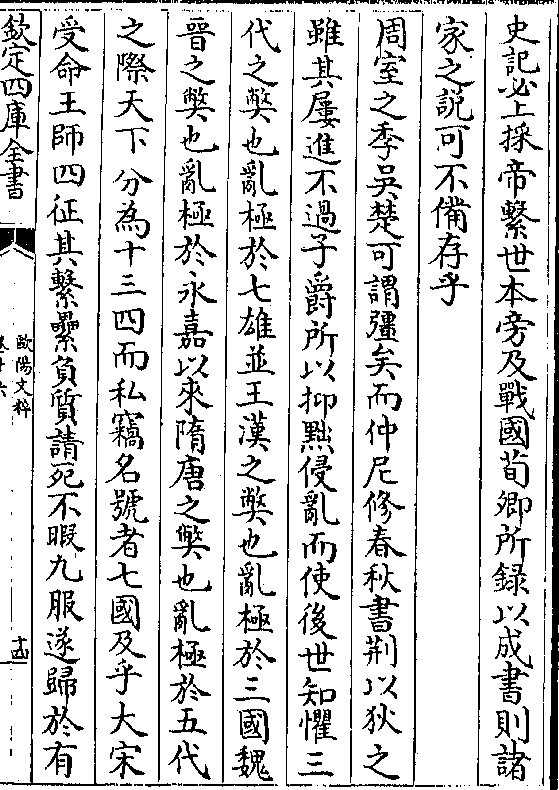 史記必上採帝繫世本旁及戰國荀卿所録以成書則諸
家之說可不備存乎
周室之季吳楚可謂彊矣而仲尼修春秋書荆以狄之
雖其屢進不過子爵所以抑黜侵亂而使後世知懼三
代之弊也亂極於七雄並王漢之弊也亂極於三國魏
晉之弊也亂極於永嘉以來隋唐之弊也亂極於五代
之際天下分為十三四而私竊名號者七國及乎大宋
受命王師四征其繫纍負質請死不暇九服遂歸於有
欽定四庫全書
歐陽文粹
卷十六
十四